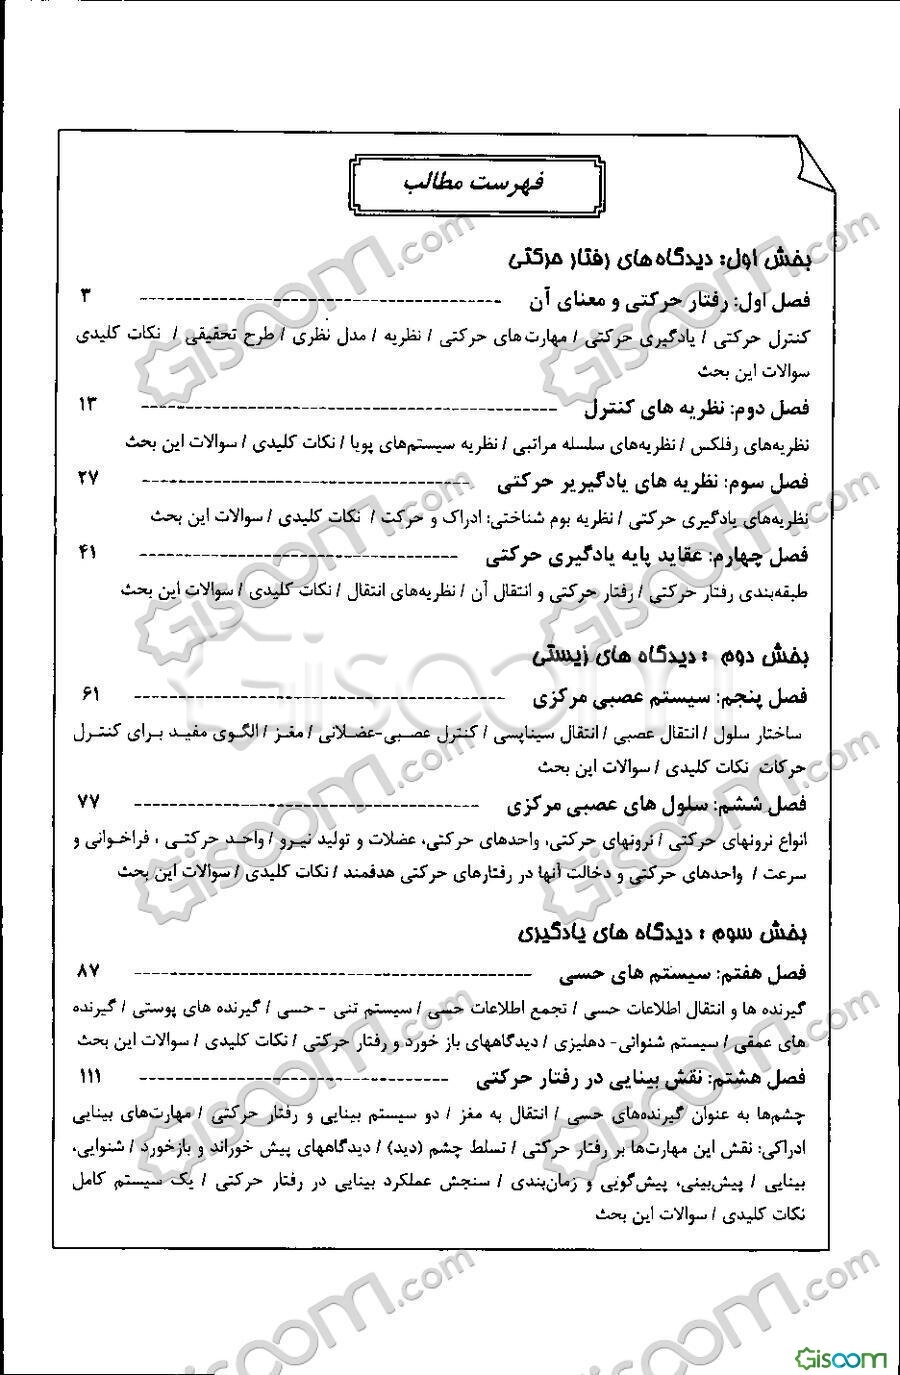 فهرست مطالب
بخش اول: دیدگاه های رفتار حرکتی
فصل اول: رفتار حرکتی و معنای آن ---------------------------------------- ۳
کنترل حرکتی / یادگیری حرکتی / مهارت‌های حرکتی / نظریه / مدل نظری / طرح تحقیقی / نکات کلیدی
سوالات این بحث
فصل دوم: نظریه های کنترل ---------------------------------------------- ۱۳
نظریه‌های رفلکس / نظریه‌های سلسله مراتبی / نظریه سیستم‌های پویا / نکات کلیدی / سوالات این بحث
فصل سوم: نظریه های یادگیریر حرکتی ------------------------------------ ۲۷
نظریه‌های یادگیری حرکتی / نظریه بوم شناختی: ادراک و حرکت / نکات کلیدی / سوالات این بحث
فصل چهارم: عقاید پایه یادگیری حرکتی ----------------------------------- ۴۱
طبقه‌بندی رفتار حرکتی / رفتار حرکتی و انتقال آن / نظریه‌های انتقال / نکات کلیدی / سوالات این بحث
بخش دوم : دیدگاه های زیستی
فصل پنجم: سیستم عصبی مرکزی ----------------------------------------- ۶۱
ساختار سلول / انتقال عصبی / انتقال سیناپسی / کنترل عصبی-عضلانی / مغز / الگوی مفید برای کنترل
حرکات نکات کلیدی / سوالات این بحث
فصل ششم: سلول های عصبی مرکزی -------------------------------------- ۷۷
انواع نرونهای حرکتی / نرونهای حرکتی، واحدهای حرکتی، عضلات و تولید نیرو / واحد حرکتی ، فراخوانی و
سرعت / واحدهای حرکتی و دخالت آنها در رفتارهای حرکتی هدفمند / نکات کلیدی / سوالات این بحث
بخش سوم : دیدگاه های یادگیری
فصل هفتم: سیستم های حسی -------------------------------------------- ۸۷
گیرنده ها و انتقال اطلاعات حسی / تجمع اطلاعات حسی / سیستم تنی - حسی / گیرنده های پوستی / گیرنده
های عمقی / سیستم شنوائی- دهلیزی / دیدگاههای باز خورد و رفتار حرکتی / نکات کلیدی / سوالات این بحث
فصل هشتم: نقش بینایی در رفتار حرکتی ---------------------------------- ۱۱۱
چشم‌ها به عنوان گیرنده‌های حسی / انتقال به مغز / دو سیستم بینایی و رفتار حرکتی / مهارت‌های بینایی
ادراکی: نقش این مهارت‌ها بر رفتار حرکتی / تسلط چشم (دید) / دیدگاههای پیش خوراند و بازخورد / شنوایی،
بینایی / پیش‌بینی، پیش‌گویی و زمان‌بندی / سنجش عملکرد بینایی در رفتار حرکتی / یک سیستم کامل
نکات کلیدی / سوالات این بحث
Gisoom